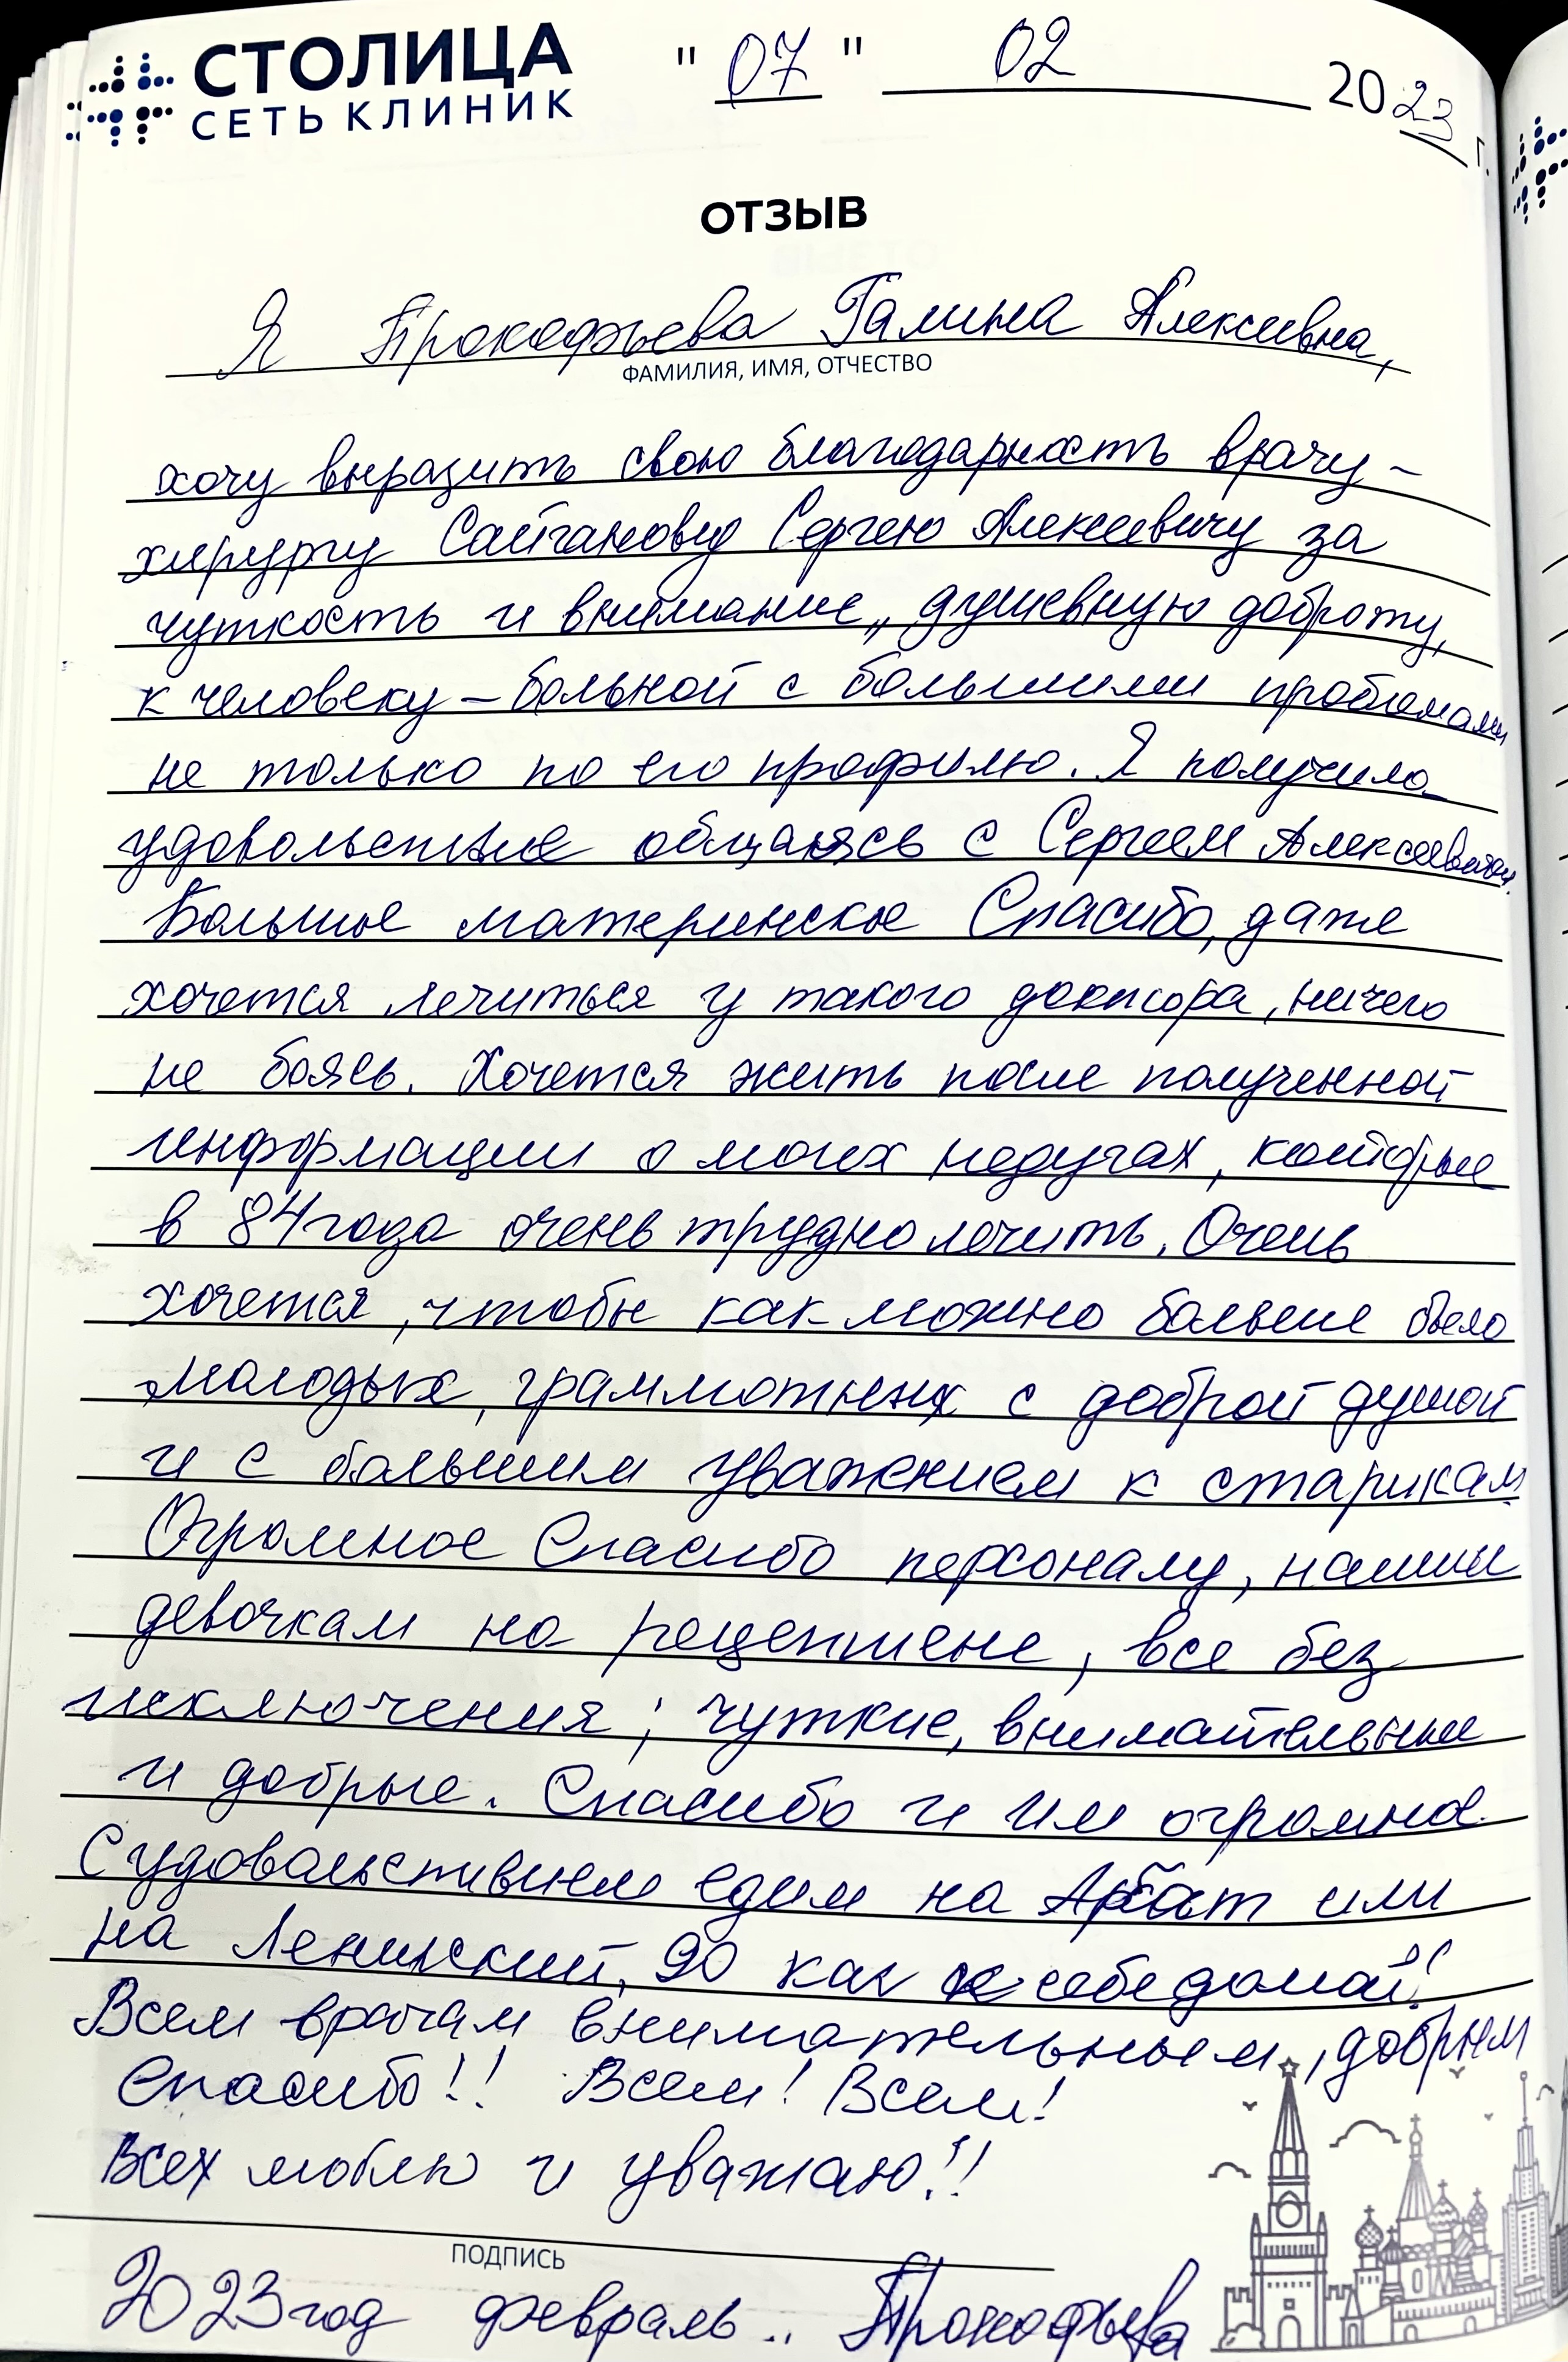 СТОЛИЦА
СЕТЬ КЛИНИК
" 07 " 02 2023 г.
ОТЗЫВ
Я Прокофьева Галина Алексеевна,
ФАМИЛИЯ, ИМЯ, ОТЧЕСТВО
хочу выразить свою благодарность врачу-
хирургу Сергею Алексеевичу за
чуткость и внимание, душевную доброту,
к человеку – больной с большими проблемами
не только по его профилю. Я получила
удовольствие общаясь с Сергеем Алексеевичем.
Большое материнское Спасибо, даже
хочется лечиться у такого доктора, ничего
не боясь. Хочется жить после полученной
информации о моих недугах, которые
в 84 года очень трудно лечить. Очень
хочется, чтобы как можно больше было
молодых, грамотных с доброй душой
и с большим уважением к старикам
Огромное Спасибо персоналу, нашим
девочкам на рецепшене, все без
исключения; чуткие, внимательные
и добрые. Спасибо и им огромное.
С удовольствием едим на Арбат или
на Ленинский, 90 как к себе домой!!
Всем врачам внимательным, добрым
Спасибо!! Всем! Всем!
Всех люблю и уважаю!!
ПОДПИСЬ
2023 год февраль .. Прокофьева